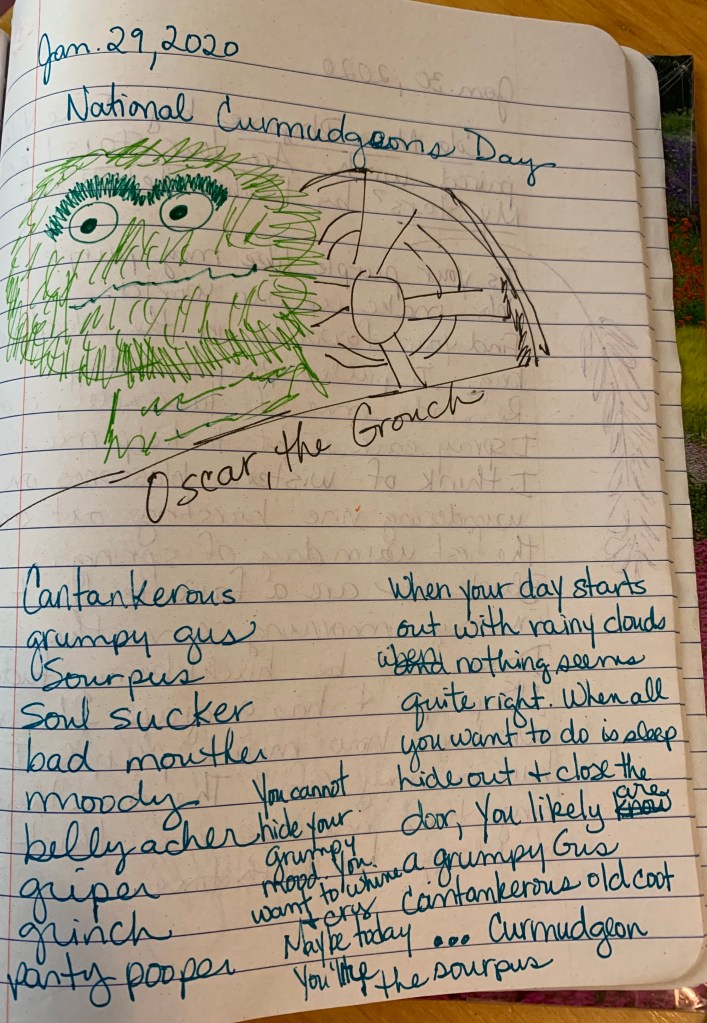 Jan. 29, 2020
National Curmudgeons Day
Oscar, the Grouch
Cantankerous
grumpy gus
Sourpus
Soul sucker
bad mouther
moody
belly acher
griper
grinch
party pooper
When your day starts
out with rainy clouds
when nothing seems
quite right. When all
you want to do is sleep
hide out + close the
door, you likely are
a grumpy Gus
Cantankerous old coot
... Curmudgeon
You cannot
hide your
grumpy
mood. You
want to whine
+ cry
Maybe today
You'll be the sourpus